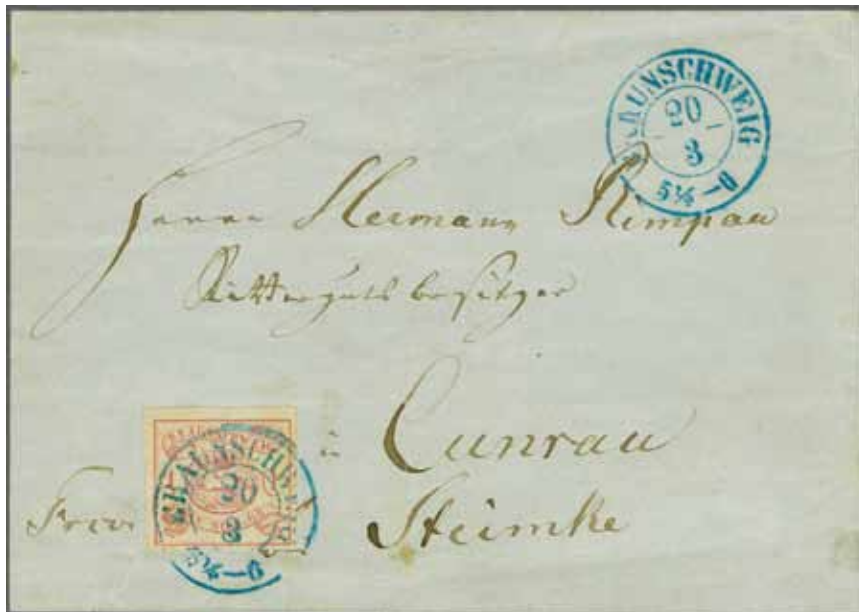 BRAUNSCHWEIG
20
3
5½–6
Herrn Hermann Rimpau
Rittergutsbesitzer
in Cunrau
Steimke
BRAUNSCHWEIG
20
3
5½–6